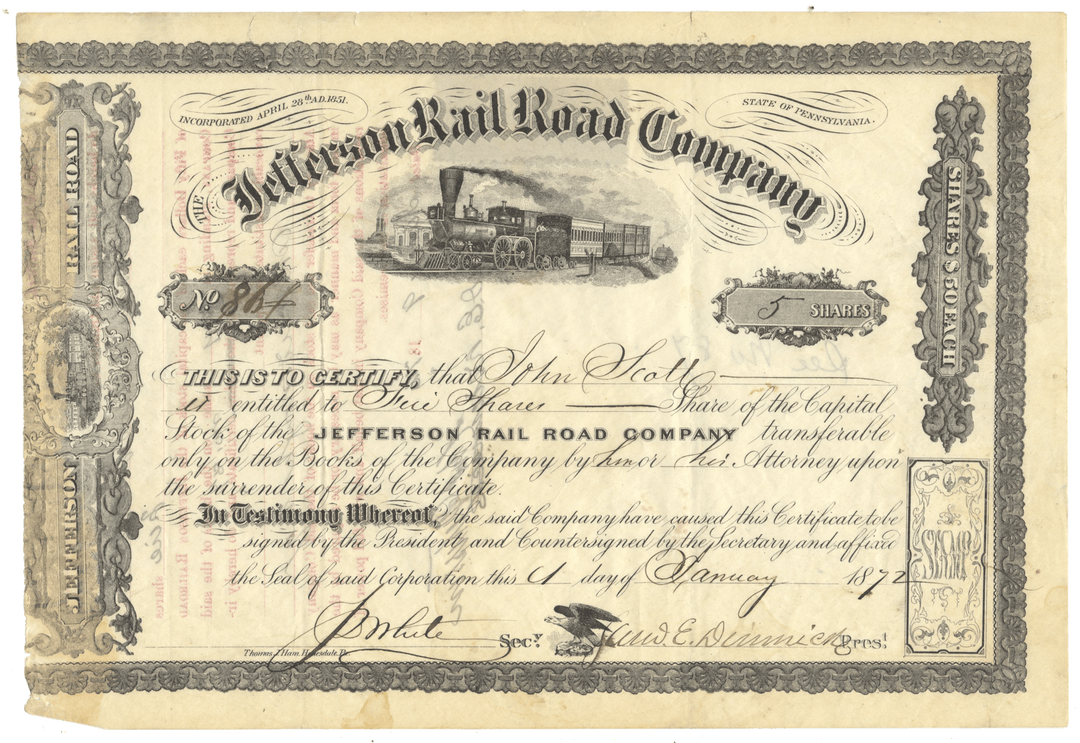 INCORPORATED APRIL 28th A.D. 1851.
STATE OF PENNSYLVANIA.
THE Jefferson Rail Road Company
No 864
5 SHARES
THIS IS TO CERTIFY, that John Scott
is entitled to Five Shares Share of the Capital
Stock of the JEFFERSON RAIL ROAD COMPANY transferable
only on the Books of the Company by him or his Attorney upon
the surrender of this Certificate.
In Testimony Whereof, the said Company have caused this Certificate to be
signed by the President and Countersigned by the Secretary and affixed
the Seal of said Corporation this day of January 1872
White Secy.
E. Dimmick Prest.
Thomas J. Ham, Honesdale, Pa.
JEFFERSON RAIL ROAD
SHARES $50 EACH